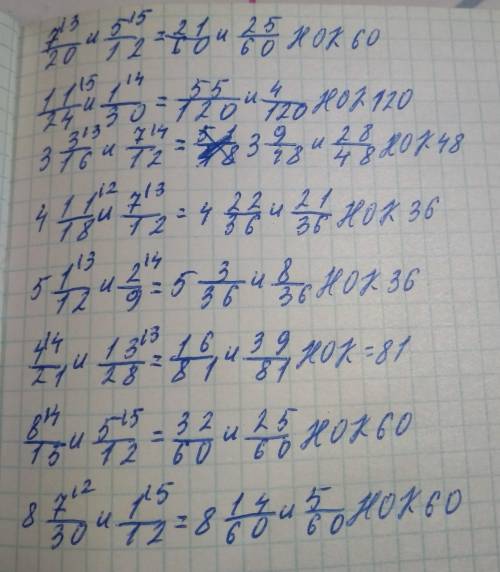 7^{13}/20 и 5^{15}/12 = 21/60 и 25/60 НОК 60
11^{15}/24 и 1^{14}/30 = 55/120 и 4/120 НОК 120
3 3^{13}/16 и 7^{14}/12 = 3 9/48 и 28/48 НОК 48
4 11^{12}/18 и 7^{13}/12 = 4 22/36 и 21/36 НОК 36
5 1^{13}/12 и 2^{14}/9 = 5 3/36 и 8/36 НОК 36
4^{14}/21 и 13^{13}/28 = 16/81 и 39/81 НОК = 81
8^{14}/15 и 5^{15}/12 = 32/60 и 25/60 НОК 60
8 7^{12}/30 и 1^{15}/12 = 8 14/60 и 5/60 НОК 60